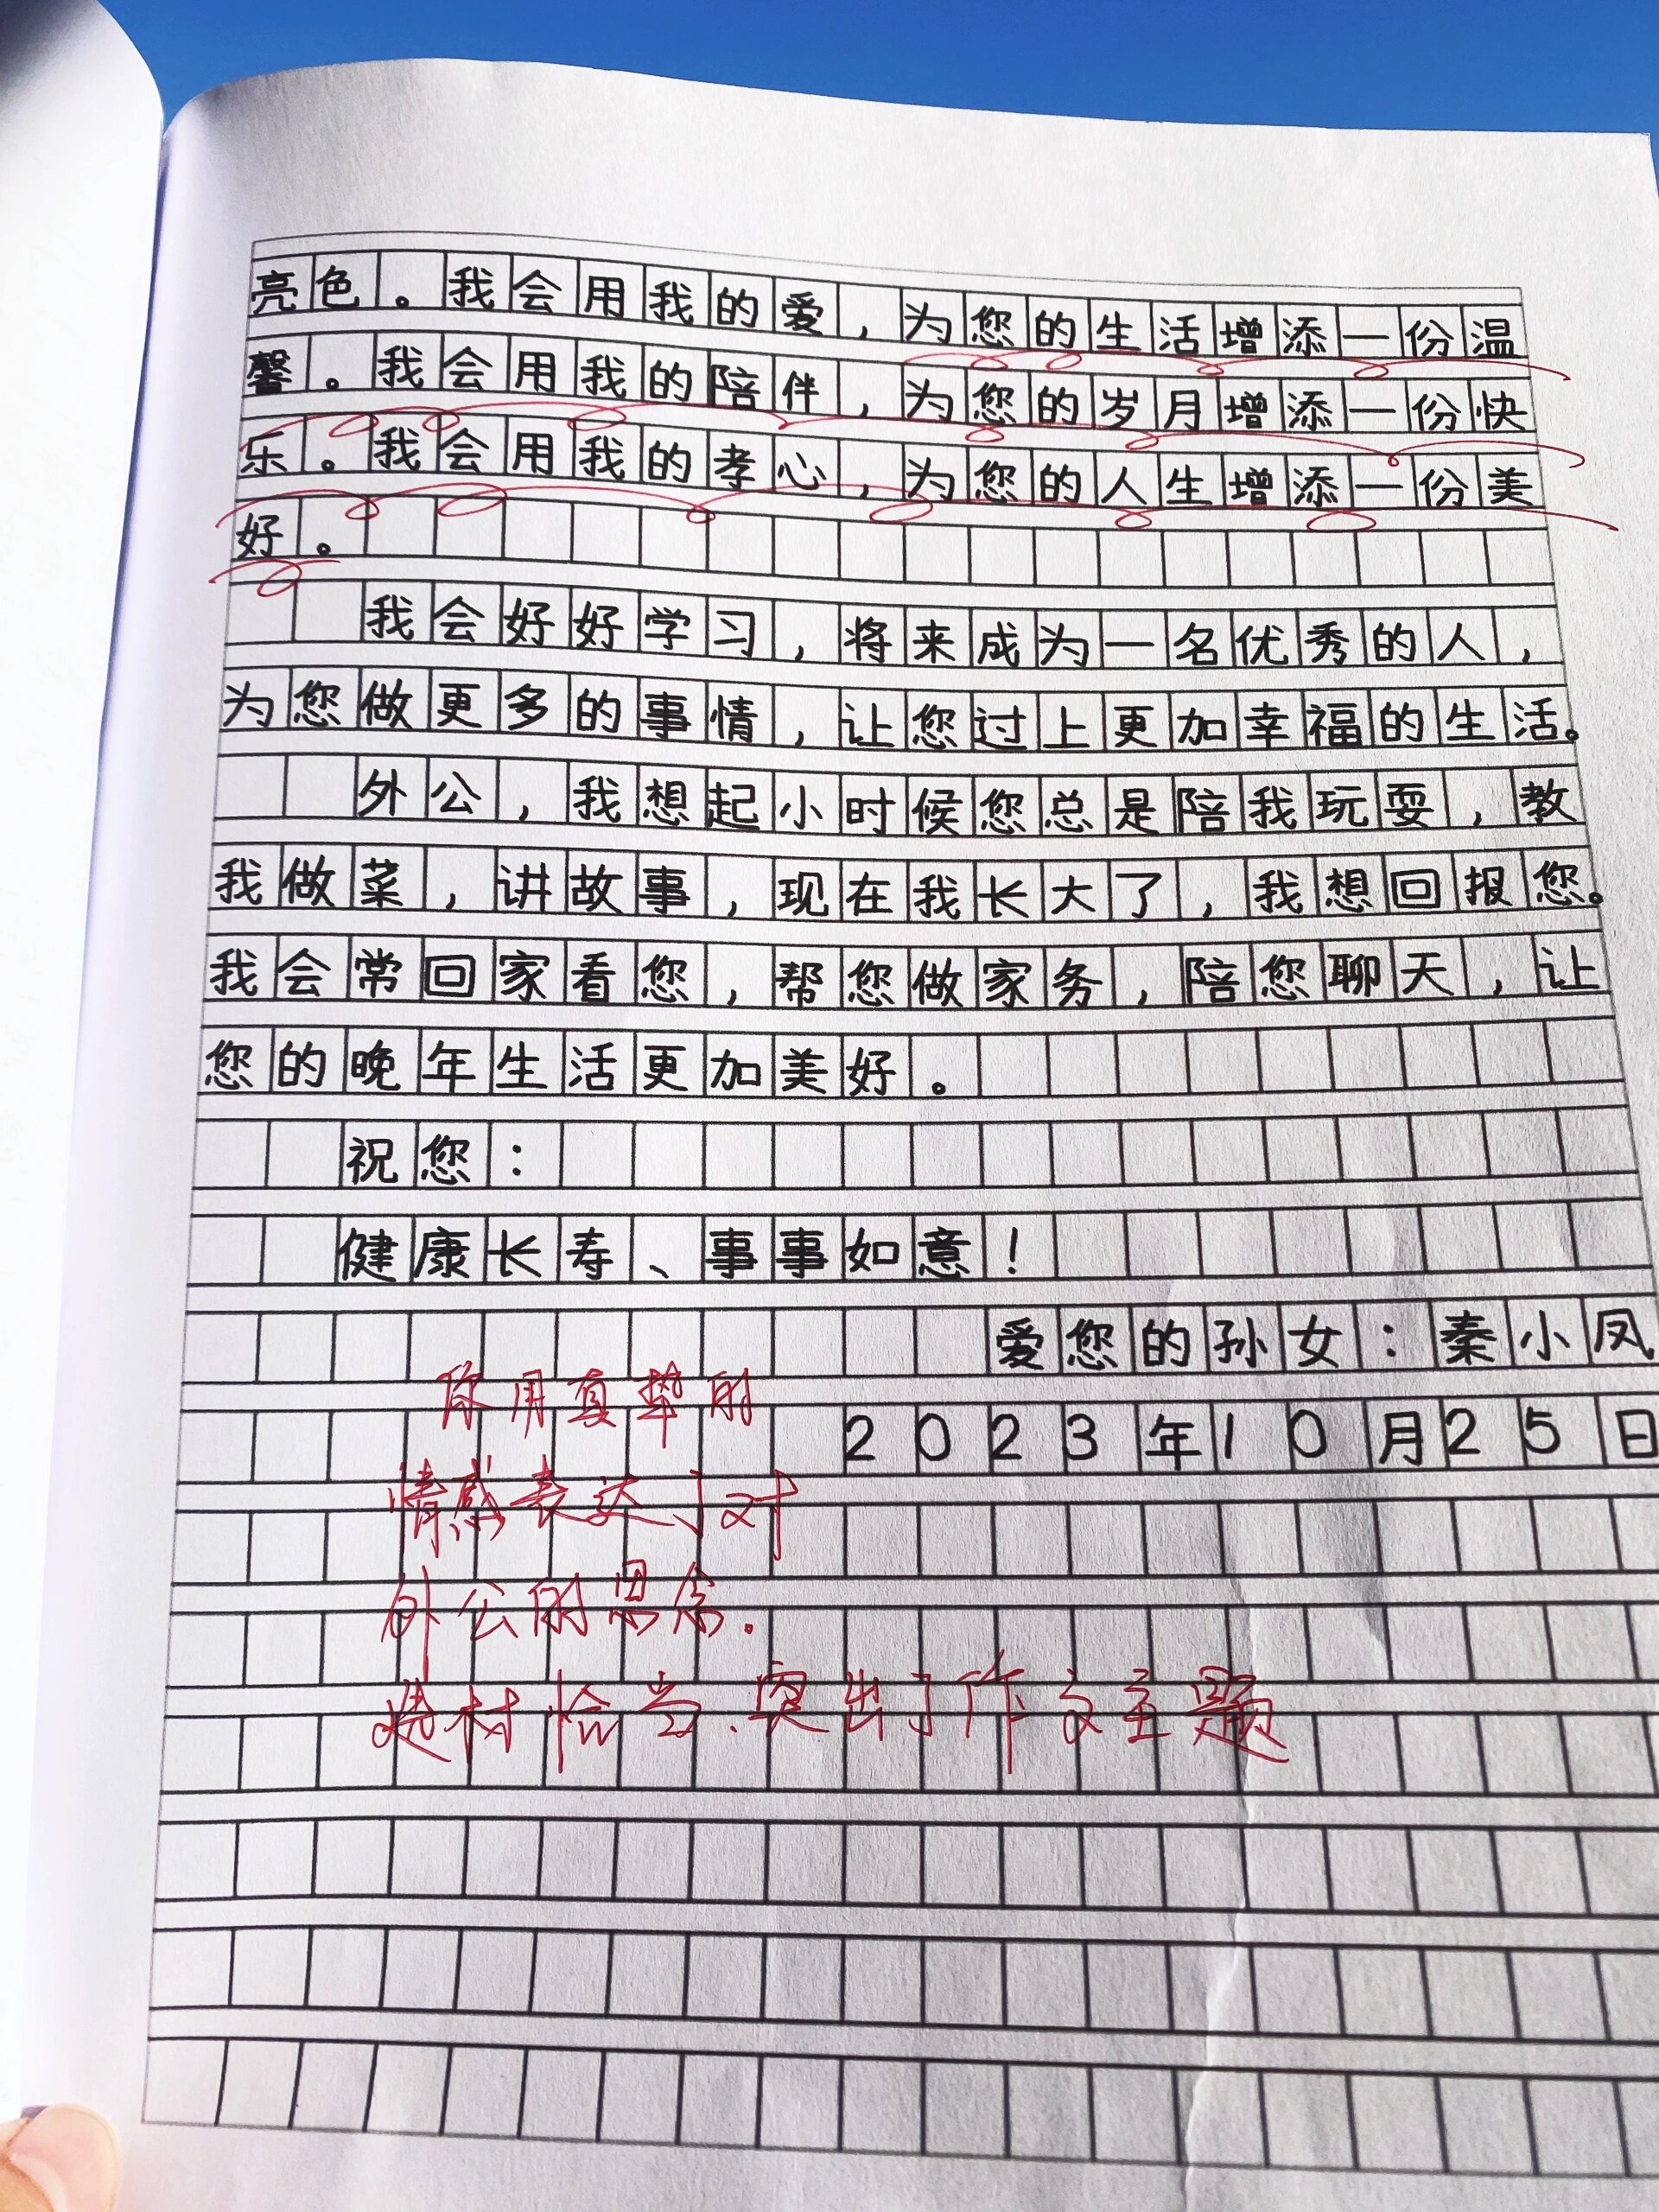 亮色。我会用我的爱,为您的生活增添一份温
馨。我会用我的陪伴,为您的岁月增添一份快
乐。我会用我的孝心,为您的人生增添一份美
好。
我会好好学习,将来成为一名优秀的人,
为您做更多的事情,让您过上更加幸福的生活。
外公,我想起小时候您总是陪我玩耍,教
我做菜,讲故事,现在我长大了,我想回报您。
我会常回家看您,帮您做家务,陪您聊天,让
您的晚年生活更加美好。
祝您:
健康长寿、事事如意!
爱您的孙女:秦小凤
2023年10月25日
你用真挚的
情感表达了对
外公的思念.
选材恰当.突出了作文主题